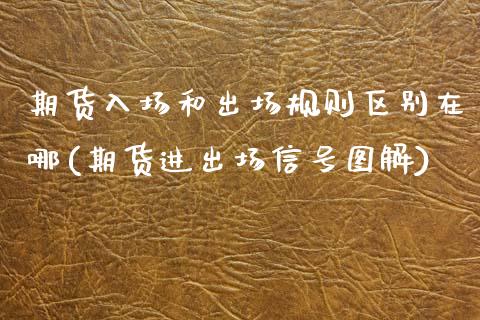 期货入场和出场规则区别在
哪(期货进出场信号图解)